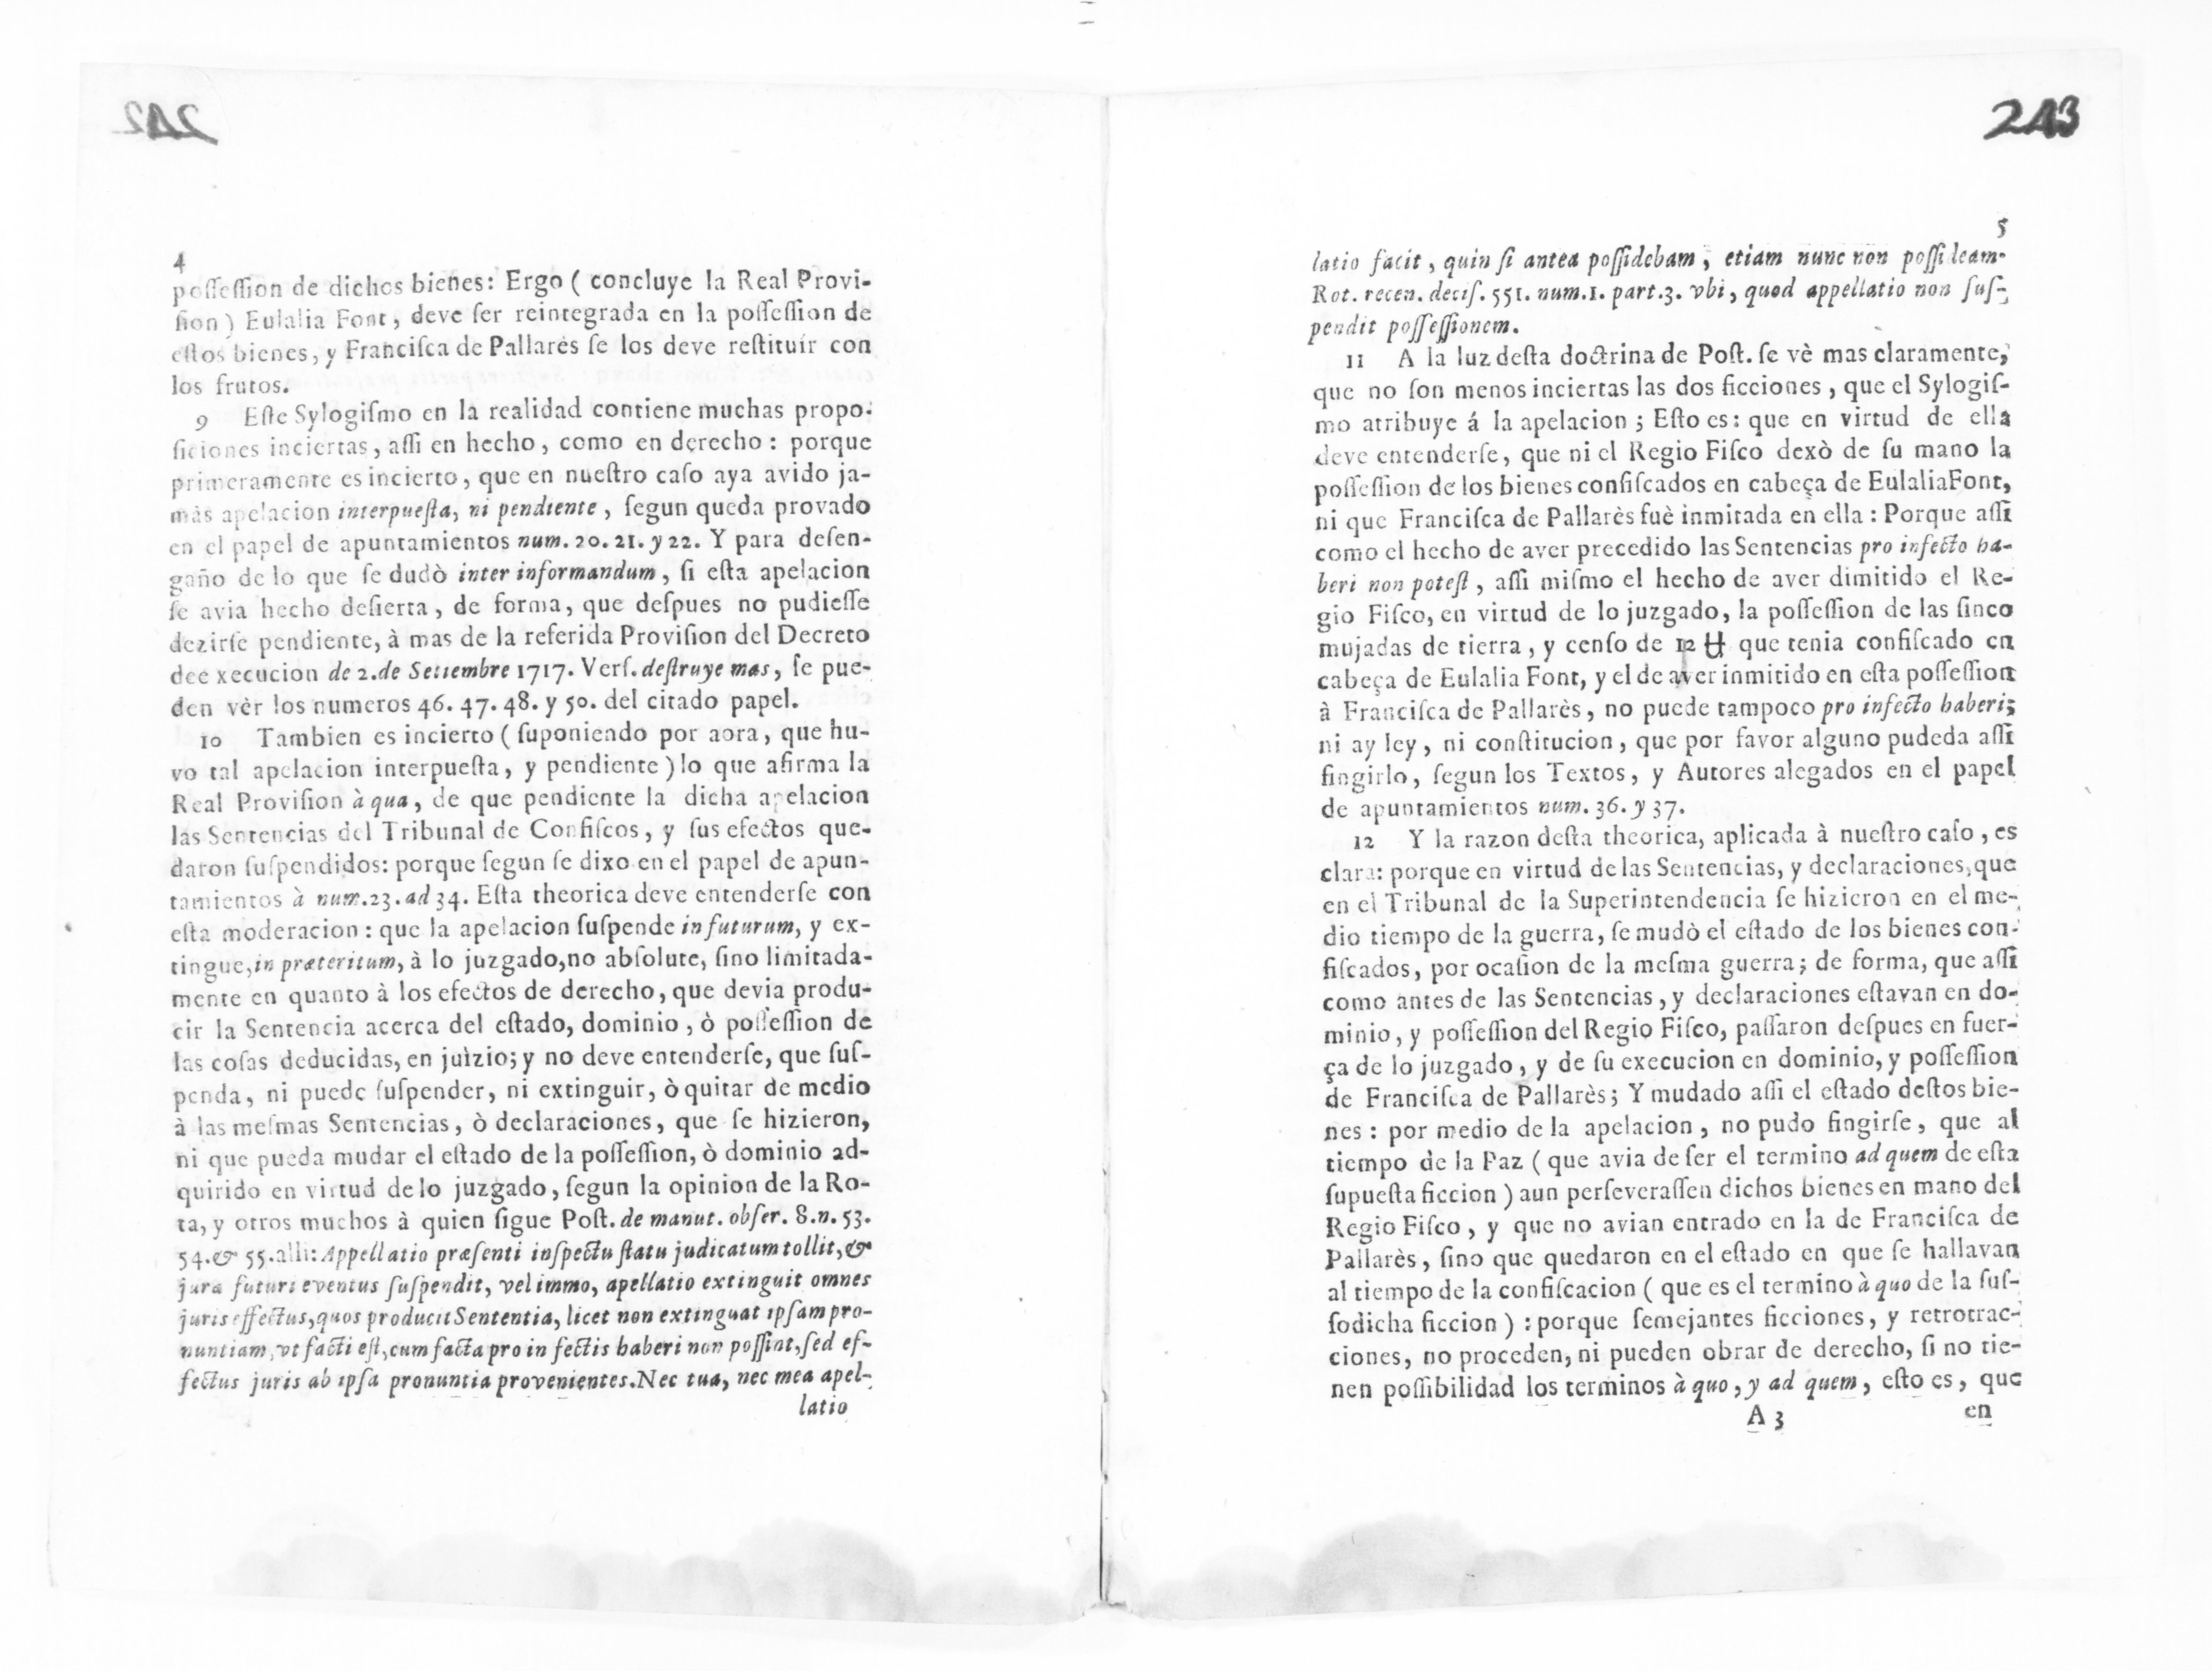 4
poſſeſſion de dichos bienes: Ergo ( concluye la Real Provi-
ſion ) Eulalia Font, deve ſer reintegrada en la poſſeſſion de
eſtos bienes, y Franciſca de Pallarès ſe los deve reſtituír con
los frutos.
9 Eſte Sylogiſmo en la realidad contiene muchas propo-
ſiciones inciertas, aſſi en hecho, como en derecho: porque
primeramente es incierto, que en nueſtro caſo aya avido ja-
màs apelacion interpueſta, ni pendiente, ſegun queda provado
en el papel de apuntamientos num. 20. 21. y 22. Y para deſen-
gaño de lo que ſe dudò inter informandum, ſi eſta apelacion
ſe avia hecho deſierta, de forma, que deſpues no pudieſſe
dezirſe pendiente, à mas de la referida Proviſion del Decreto
dee xecucion de 2. de Settembre 1717. Verſ. deſtruye mas, ſe pue-
den vèr los numeros 46. 47. 48. y 50. del citado papel.
10 Tambien es incierto ( ſuponiendo por aora, que hu-
vo tal apelacion interpueſta, y pendiente ) lo que afirma la
Real Proviſion à qua, de que pendiente la dicha apelacion
las Sentencias del Tribunal de Confiſcos, y ſus efectos que-
daron ſuſpendidos: porque ſegun ſe dixo en el papel de apun-
tamientos à num. 23. ad 34. Eſta theorica deve entenderſe con
eſta moderacion: que la apelacion ſuſpende in futurum, y ex-
tingue, in præteritum, à lo juzgado, no abſolute, ſino limitada-
mente en quanto à los efectos de derecho, que devia produ-
cir la Sentencia acerca del eſtado, dominio, ò poſſeſſion de
las coſas deducidas, en juìzio; y no deve entenderſe, que ſuſ-
penda, ni puede ſuſpender, ni extinguir, ò quitar de medio
à las meſmas Sentencias, ò declaraciones, que ſe hizieron,
ni que pueda mudar el eſtado de la poſſeſſion, ò dominio ad-
quirido en virtud de lo juzgado, ſegun la opinion de la Ro-
ta, y otros muchos à quien ſigue Poſt. de manut. obſer. 8. n. 53.
54. & 55. alli: Appellatio præſenti inſpectu ſtatu judicatum tollit, &
jura futuri eventus ſuſpendit, vel immo, apellatio extinguit omnes
juris effectus, quos producit Sententia, licet non extinguat ipſam pro-
nuntiam, vt facti eſt, cum facta pro in fectis haberi non poſſint, ſed ef-
fectus juris ab ipſa pronuntia provenientes. Nec tua, nec mea apel-
latio
243
5
latio facit, quin ſi antea poſſidebam, etiam nunc non poſſi leam.
Rot. recen. deciſ. 551. num. 1. part. 3. vbi, quod appellatio non ſuſ-
pendit poſſeſſionem.
11 A la luz deſta doctrina de Poſt. ſe vè mas claramente,
que no ſon menos inciertas las dos ficciones, que el Sylogiſ-
mo atribuye á la apelacion; Eſto es: que en virtud de ella
deve entenderſe, que ni el Regio Fiſco dexò de ſu mano la
poſſeſſion de los bienes confiſcados en cabeça de EulaliaFont,
ni que Franciſca de Pallarès fuè inmitada en ella: Porque aſſi
como el hecho de aver precedido las Sentencias pro infecto ha-
beri non poteſt, aſſi miſmo el hecho de aver dimitido el Re-
gio Fiſco, en virtud de lo juzgado, la poſſeſſion de las ſinco
mujadas de tierra, y cenſo de 12 que tenia confiſcado en
cabeça de Eulalia Font, y el de aver inmitido en eſta poſſeſſion
à Franciſca de Pallarès, no puede tampoco pro infecto haberi;
ni ay ley, ni conſtitucion, que por favor alguno pudeda aſſi
fingirlo, ſegun los Textos, y Autores alegados en el papel
de apuntamientos num. 36. y 37.
12 Y la razon deſta theorica, aplicada à nueſtro caſo, es
clara: porque en virtud de las Sentencias, y declaraciones, que
en el Tribunal de la Superintendencia ſe hizieron en el me-
dio tiempo de la guerra, ſe mudò el eſtado de los bienes con-
fiſcados, por ocaſion de la meſma guerra; de forma, que aſſi
como antes de las Sentencias, y declaraciones eſtavan en do-
minio, y poſſeſſion del Regio Fiſco, paſſaron deſpues en fuer-
ça de lo juzgado, y de ſu execucion en dominio, y poſſeſſion
de Franciſca de Pallarès; Y mudado aſſi el eſtado deſtos bie-
nes: por medio de la apelacion, no pudo fingirſe, que al
tiempo de la Paz ( que avia de ſer el termino ad quem de eſta
ſupueſta ficcion ) aun perſeveraſſen dichos bienes en mano del
Regio Fiſco, y que no avian entrado en la de Franciſca de
Pallarès, ſino que quedaron en el eſtado en que ſe hallavan
al tiempo de la confiſcacion ( que es el termino à quo de la ſuſ-
ſodicha ficcion ) : porque ſemejantes ficciones, y retrotrac-
ciones, no proceden, ni pueden obrar de derecho, ſi no tie-
nen poſſibilidad los terminos à quo, y ad quem, eſto es, que
A 3 en